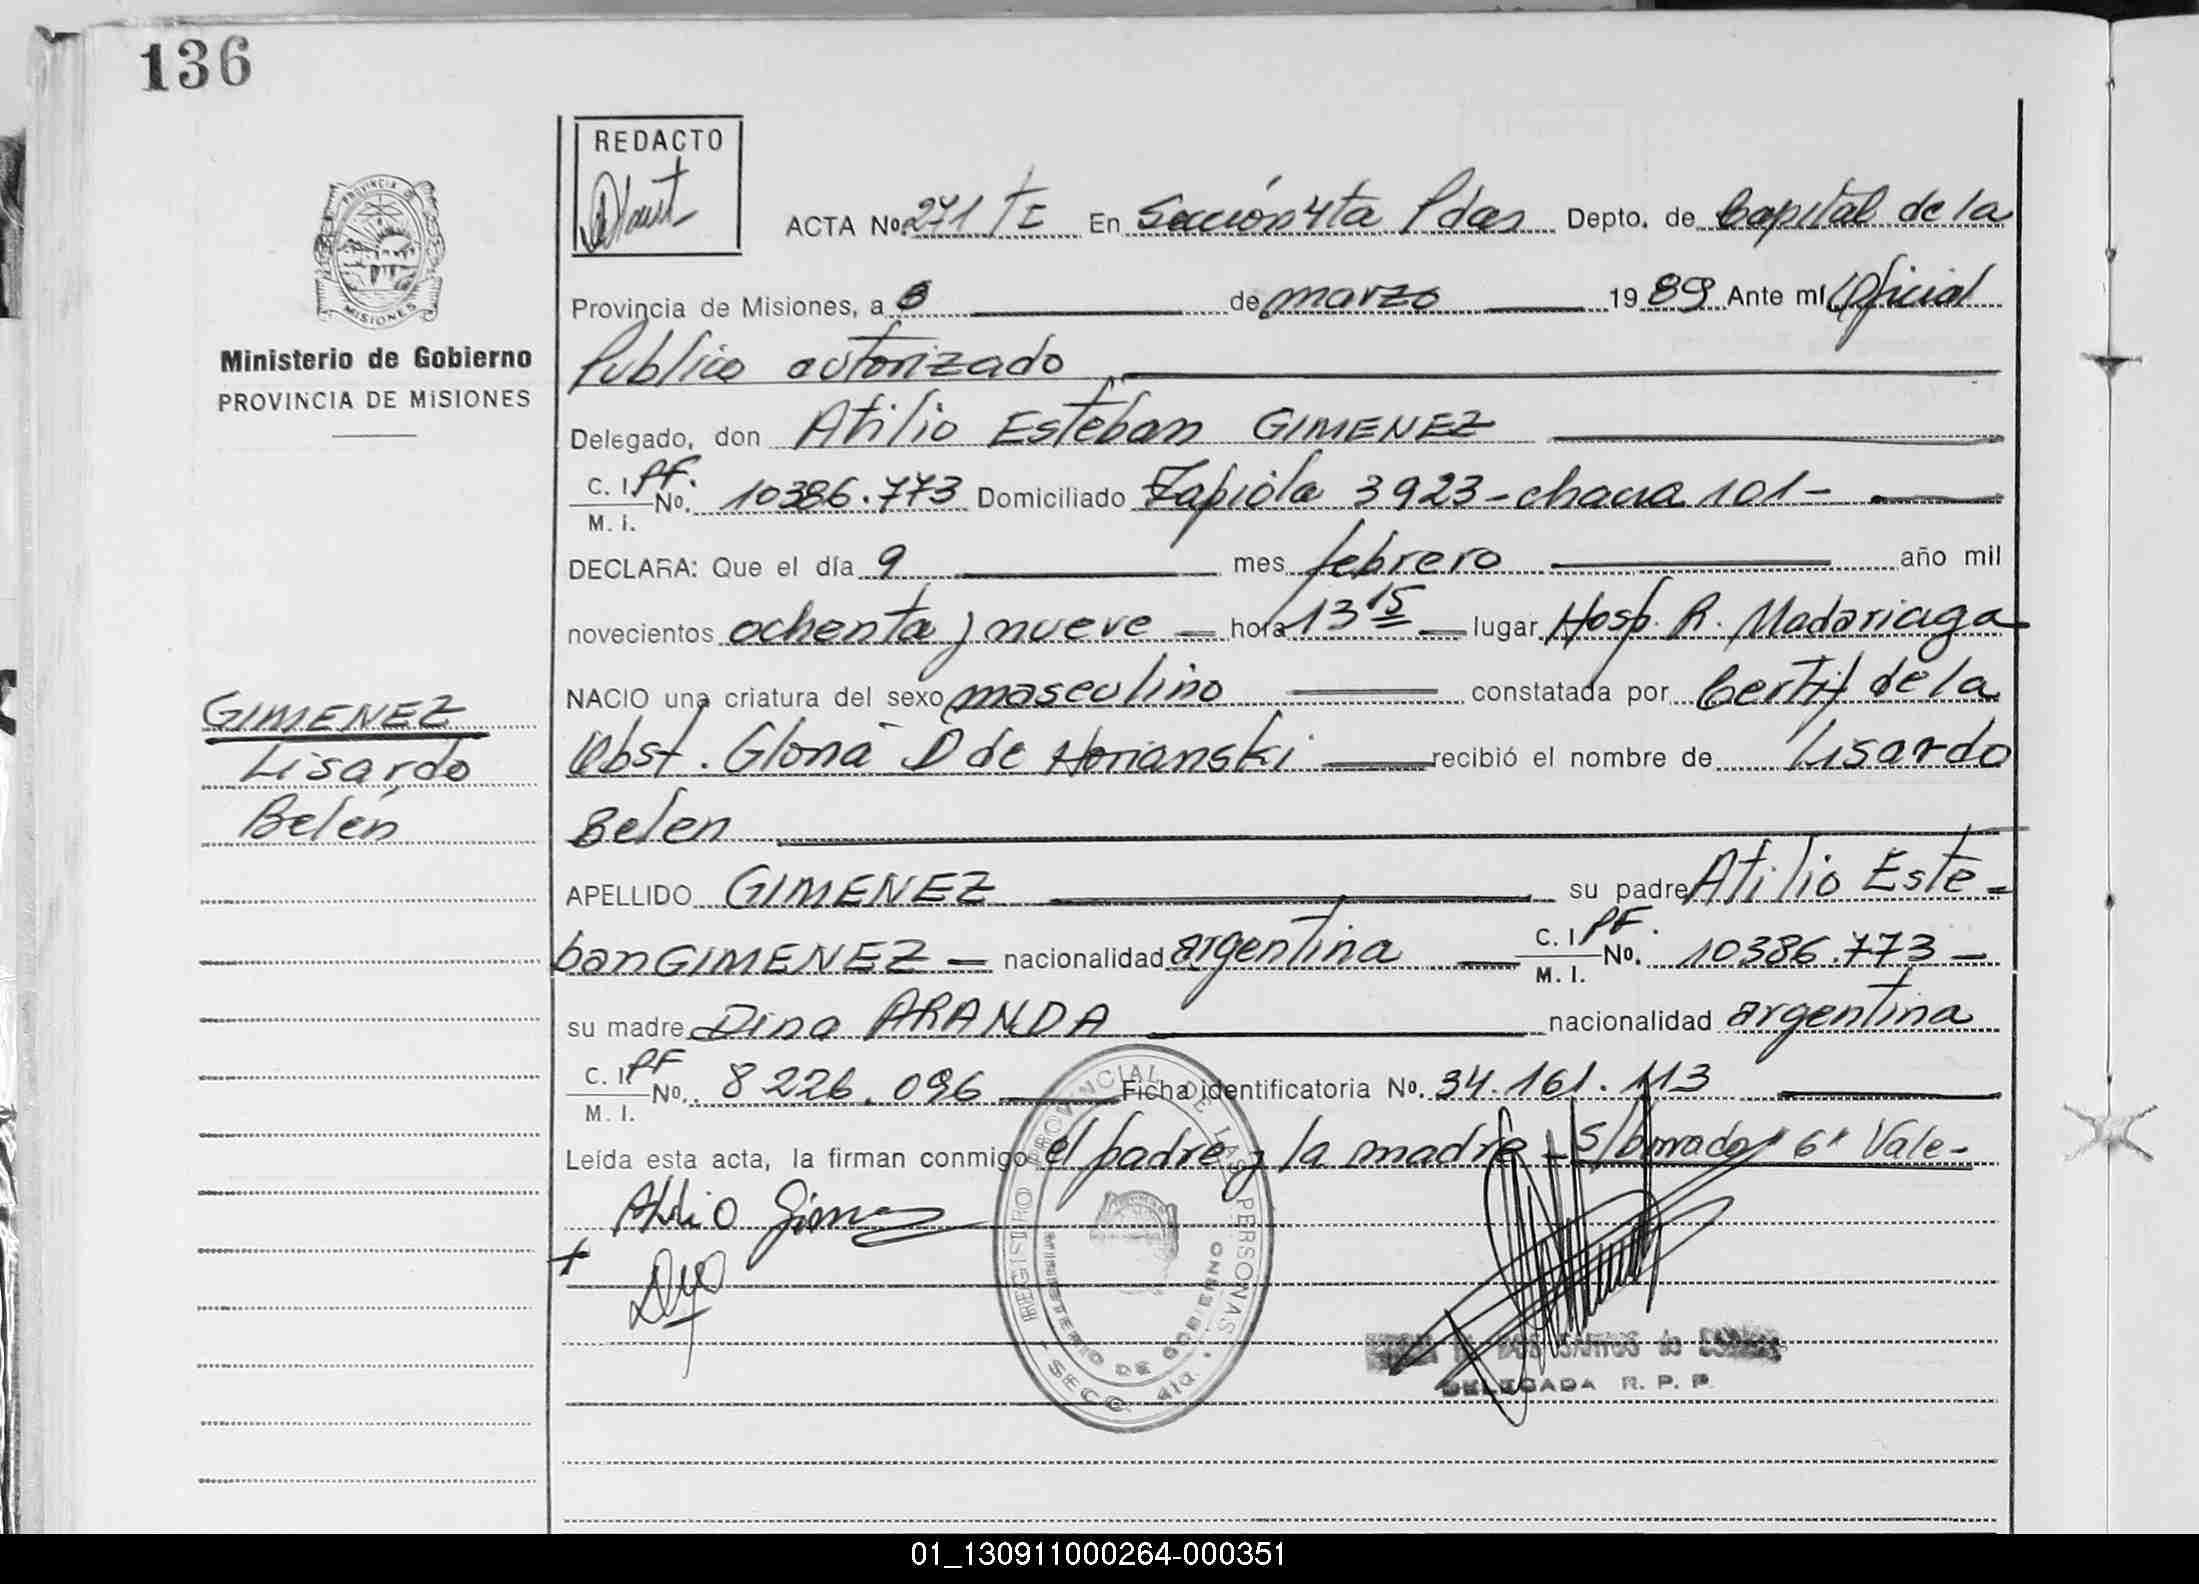 136
REDACTO
PROVINCIA DE
MISIONES
Ministerio de Gobierno
PROVINCIA DE MISIONES
ACTA No. 271 TE En Sección 4ta Pdas Depto. de Capital de la
Provincia de Misiones, a 6 de marzo 1989 Ante mí Oficial
Publico autorizado
Delegado, don Atilio Esteban GIMENEZ
C. I. PF.
M. I. No. 10386.773 Domiciliado Zapiola 3923 - chacra 101 -
DECLARA: Que el día 9 mes febrero año mil
novecientos ochenta y nueve hora 13 15 lugar Hosp. R. Madariaga
NACIO una criatura del sexo masculino constatada por Certif de la
GIMENEZ
Obst. Gloria D de Horianski recibió el nombre de Lisardo
Lisardo
Belen
Belén
APELLIDO GIMENEZ su padre Atilio Este-
ban GIMENEZ - nacionalidad argentina C. I. PF. M. I. No. 10386.773 -
su madre Dina ARANDA nacionalidad argentina
C. I. PF M. I. No. 8226.096 Ficha identificatoria No. 34.161.113
Leída esta acta, la firman conmigo el padre y la madre - S/borrado "6" Vale-
Atilio Gimenez
REGISTRO PROVINCIAL DE LAS PERSONAS
MINISTERIO DE GOBIERNO
SECC. 4ta.
DELEGADA R. P. P.
01_130911000264-000351